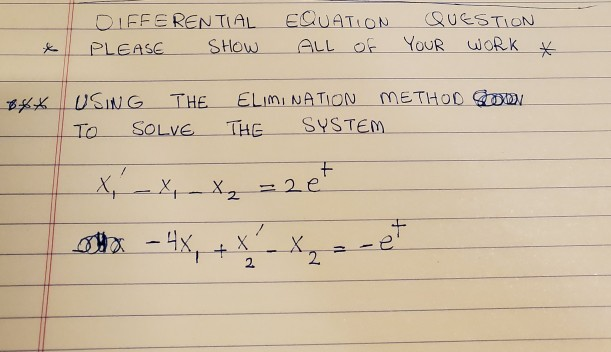 DIFFERENTIAL EQUATION QUESTION
* PLEASE SHOW ALL OF YOUR WORK *
*** USING THE ELIMINATION METHOD
TO SOLVE THE SYSTEM
x₁′ - x₁ - x₂ = 2e^t
-4x₁ + x₂′ - x₂ = -e^t